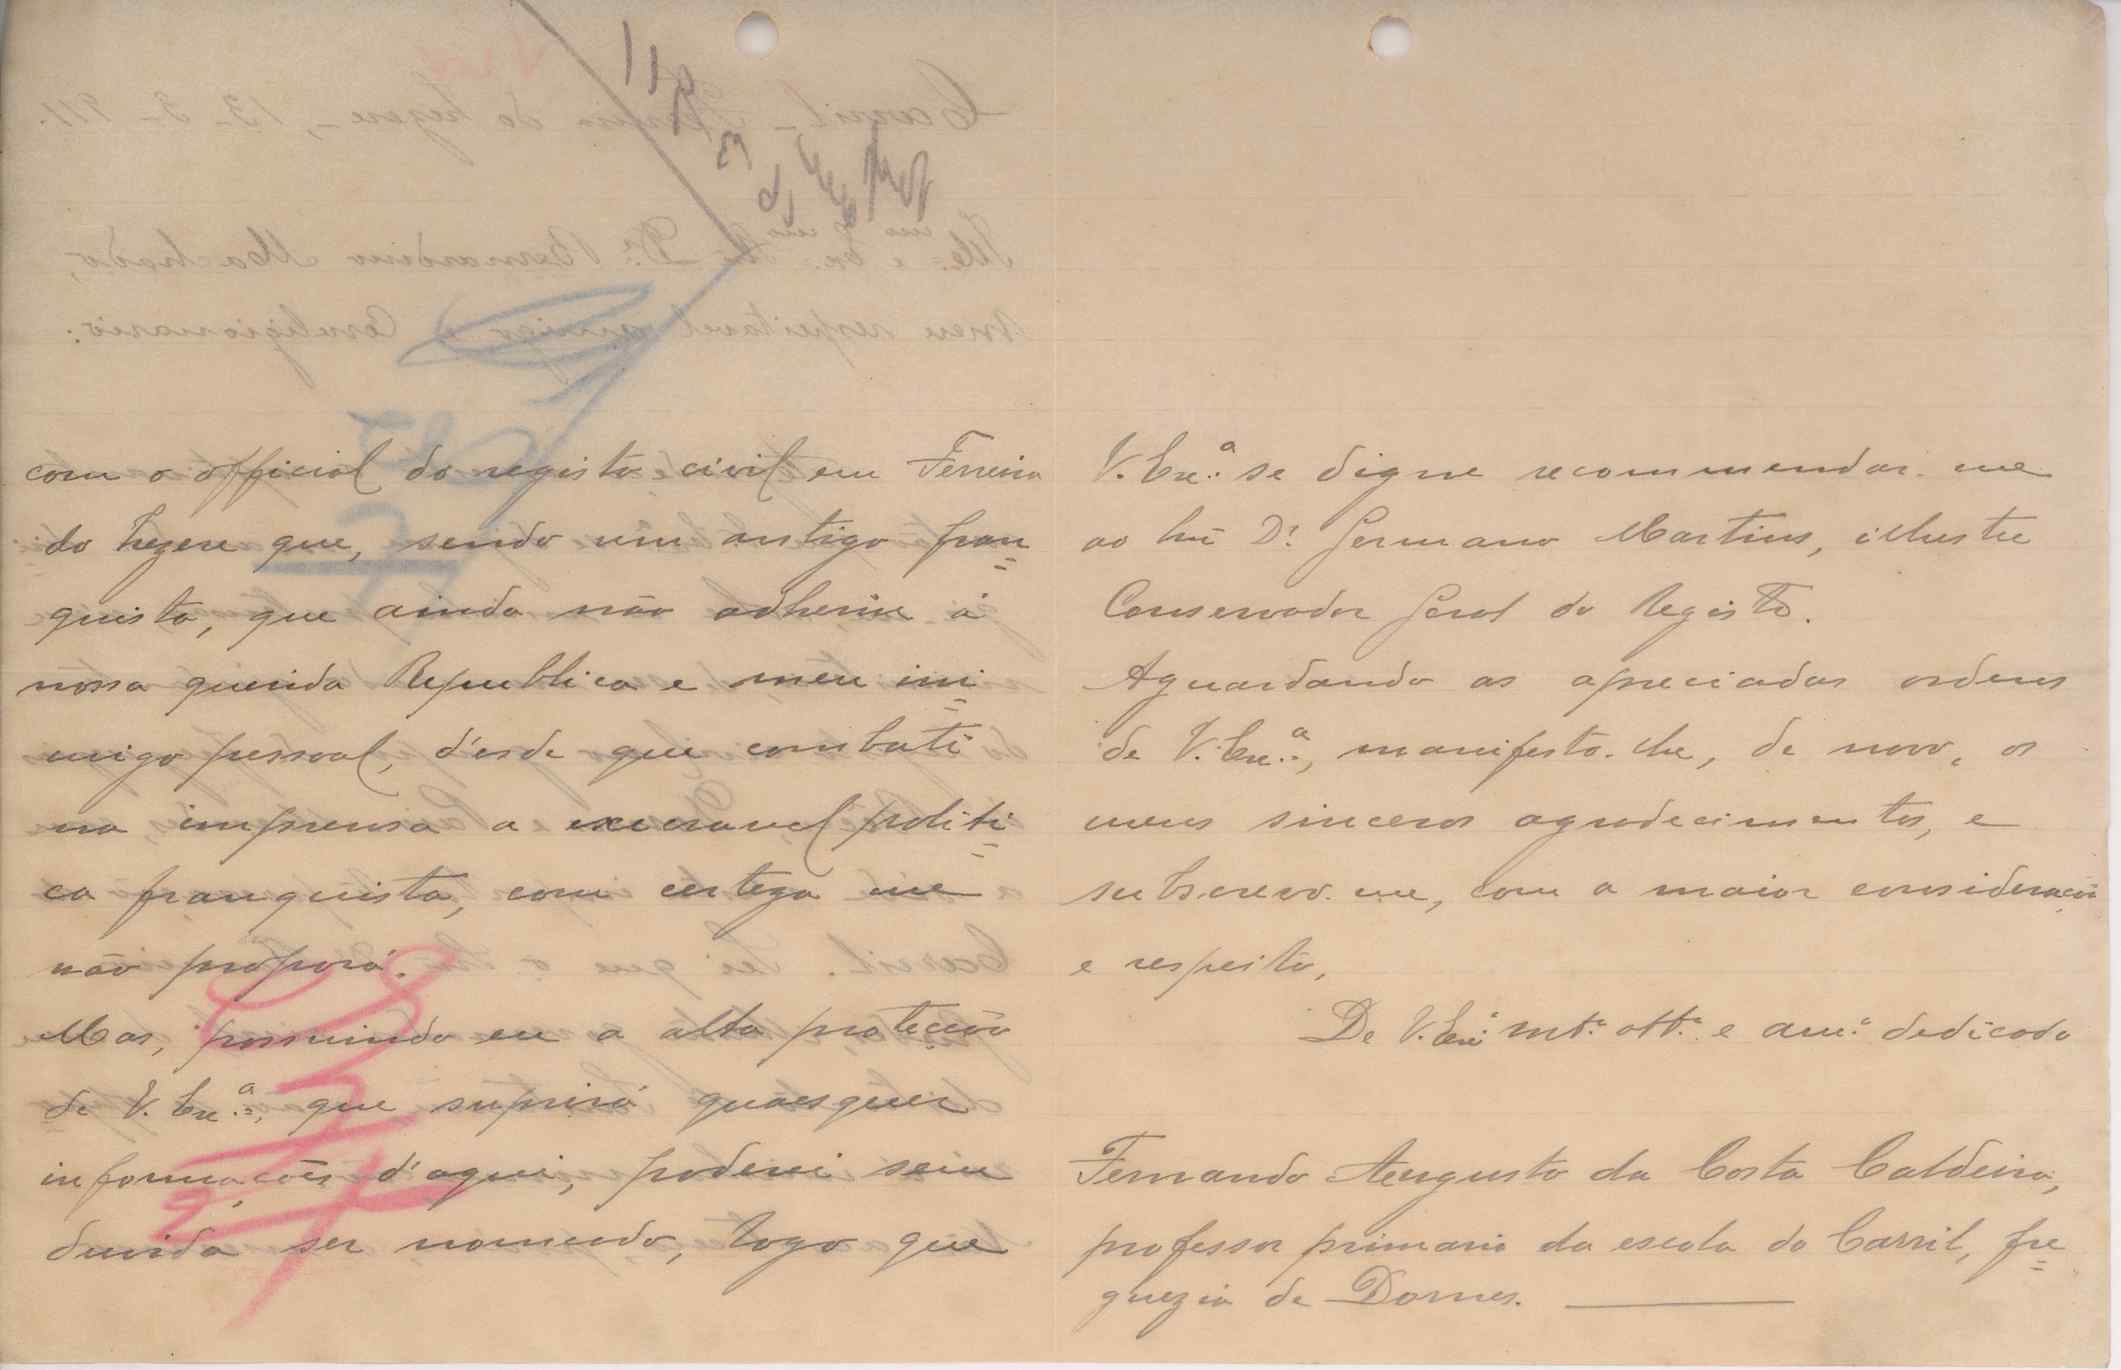 com o official do registo civil em Ferreira
do Zezere que, sendo um antigo fran=
quista, que ainda não adheriu á
nossa querida Republica e meu ini=
migo pessoal, d'esde que combati
na imprensa a execravel politi=
ca franquista, com certeza me
não proporá.
Mas, possuindo eu a alta protecção
de V. Exc.ª, que suprirá quaesquer
informações d'aqui, poderei sem
duvida ser nomeado, logo que
V. Exc.ª se digne recommendar-me
ao Dr. Germano Martins, illustre
Conservador Geral do Registo.
Aguardando as apreciadas ordens
de V. Exc.ª, manifesto-lhe, de novo, os
meus sinceros agradecimentos, e
subscrevo-me, com a maior consideração
e respeito,
De V. Exc.ª mt.º att.º e am.º dedicado
Fernando Augusto da Costa Caldeira,
professor primario da escola do Carril, fre=
guezia de Dornes.